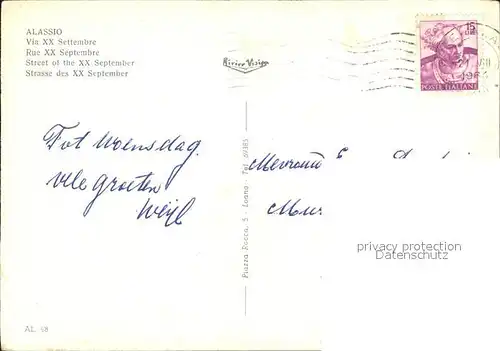 ALASSIO
Via XX Settembre
Rue XX Septembre
Street of the XX September
Strasse des XX September
15
POSTE ITALIANE
1964
Tot Woensdag.
Vele Groeten
Piazza Rocca, 5 - Loano - Tel. 69385
Mevrouw
privacy protection
Datenschutz
AL. 98